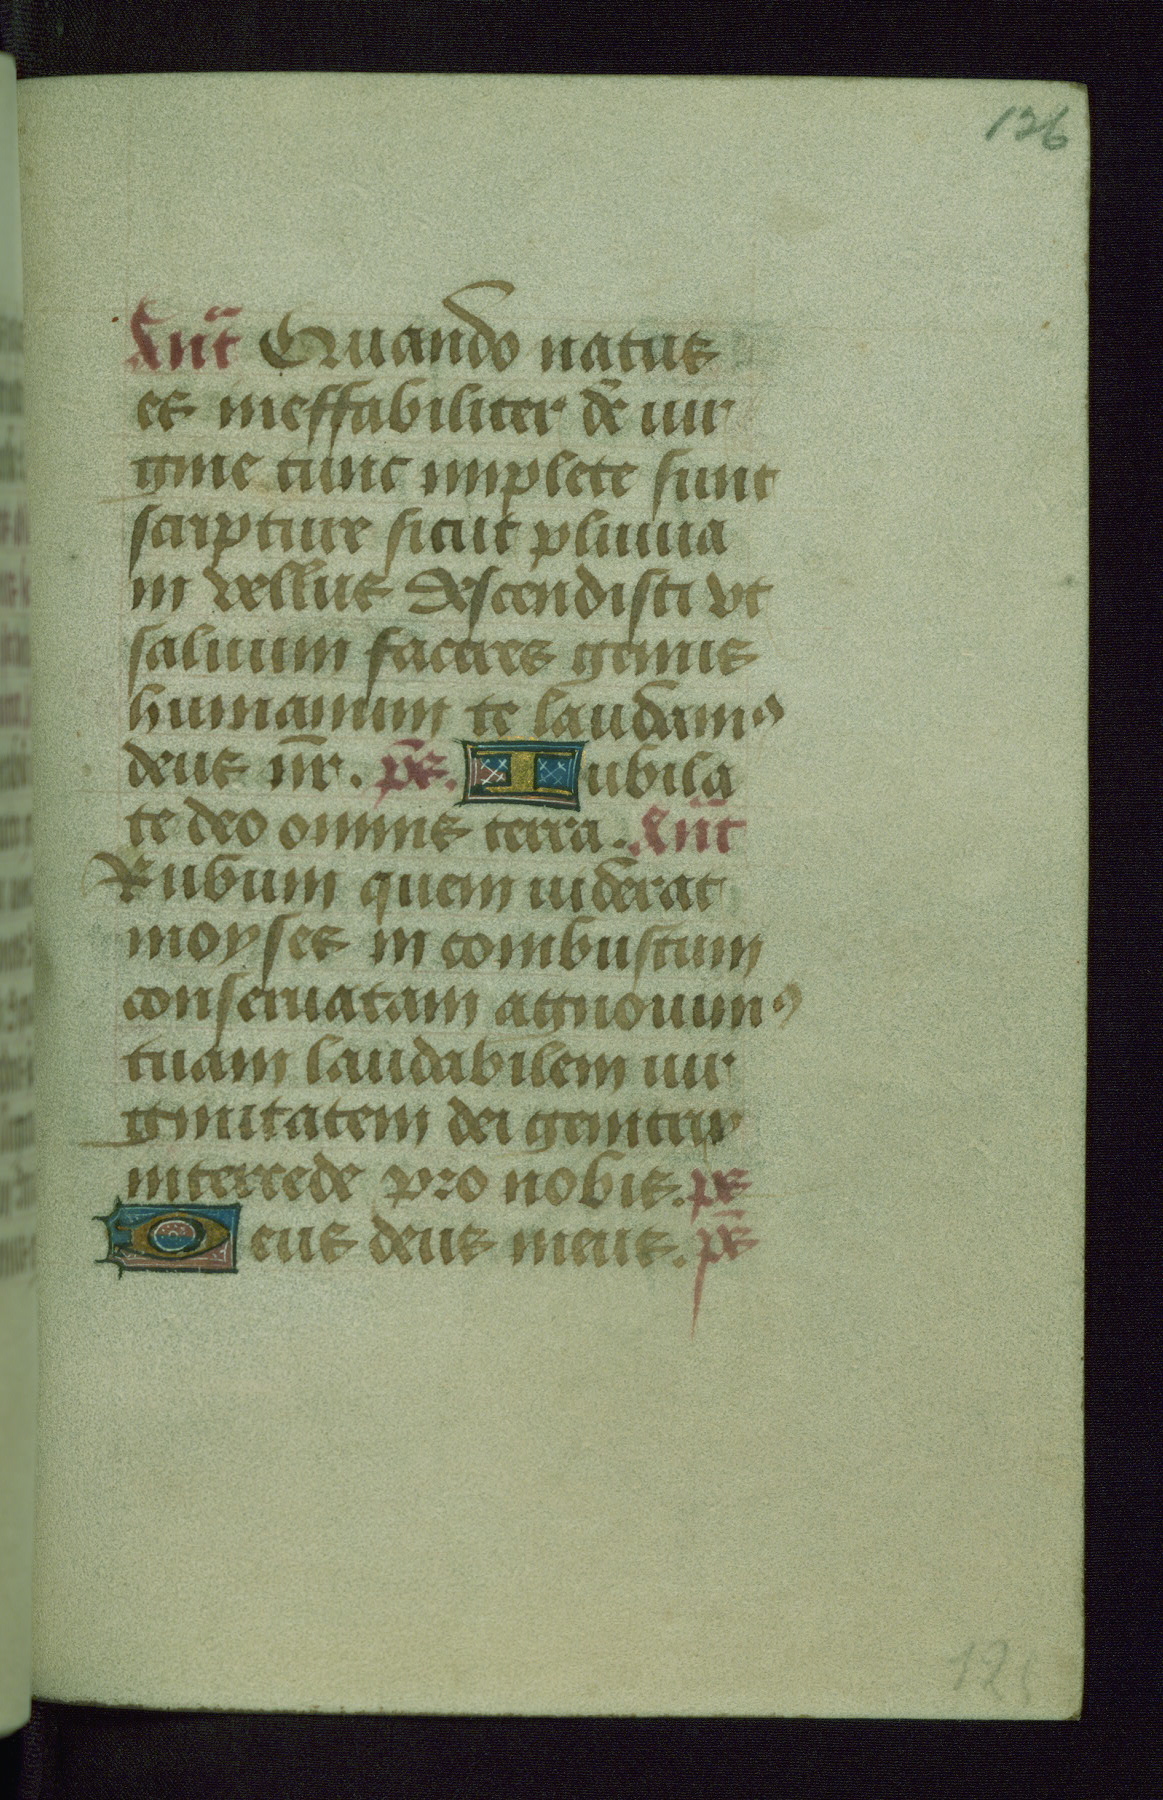 126
Ant̄ Quando natus
es ineffabiliter de vir
gine tunc implete sunt
scripture sicut pluuia
in vellus descendisti vt
saluum faceres genus
humanum te laudamꝰ
deus nr̄. ps̄. Iubila
te deo omnis terra. Ant̄
Rubum quem viderat
moyses in combustum
conseruatam agnouimꝰ
tuam laudabilem vir
ginitatem dei genitrix
intercede pro nobis. ps
Deus deus meus. ps̄